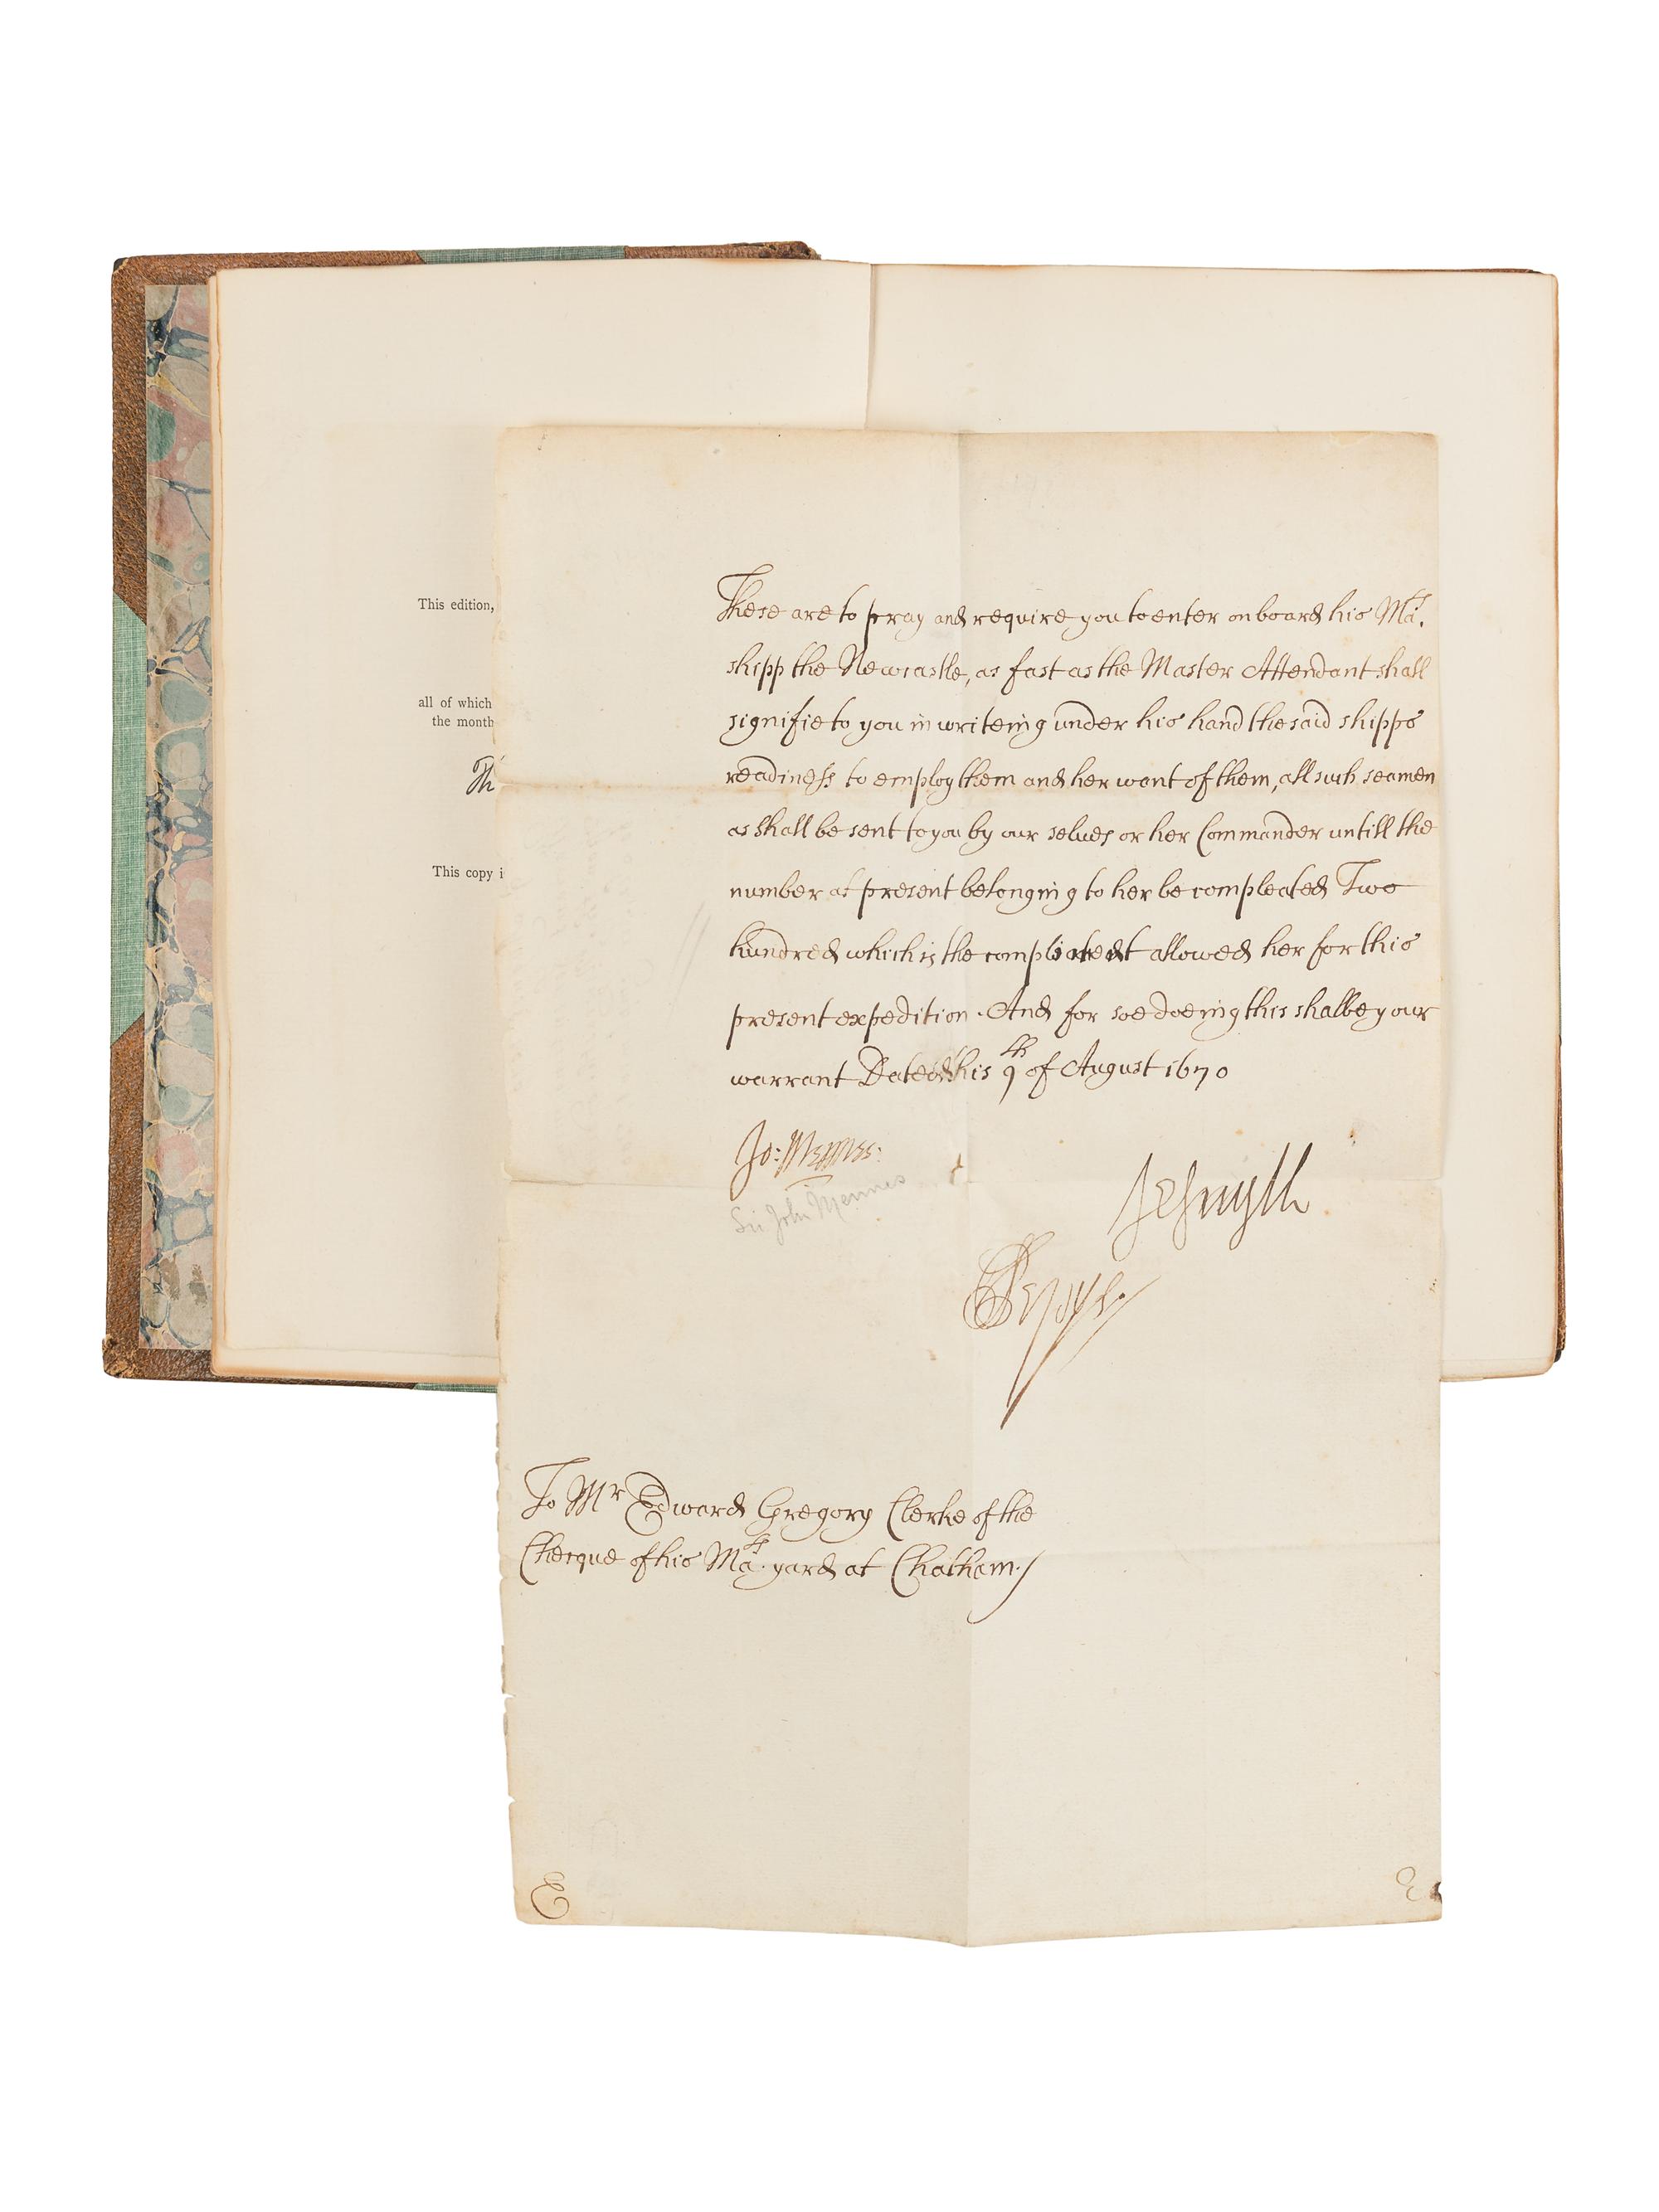 This edition,
all of which
the month
Th
This copy i
These are to pray and require you to enter on board his Ma.ts
shipp the Newcastle, as fast as the Master Attendant shall
signifie to you in writeing under his hand the said shipps
readiness to employ them and her want of them, all such seamen
as shall be sent to you by our selues or her Commander untill the
number at present belonging to her be compleated Two
hundred which is the allowed her for this
present expedition. And for soe doeing this shalbe your
warrant Dated this 9th of August 1670
Jo: Mennes:
Sir John Mennes
JeSmyth
SPepys.
To Mr Edward Gregory Clerke of the
Checque of his Ma.ts yard at Chatham./